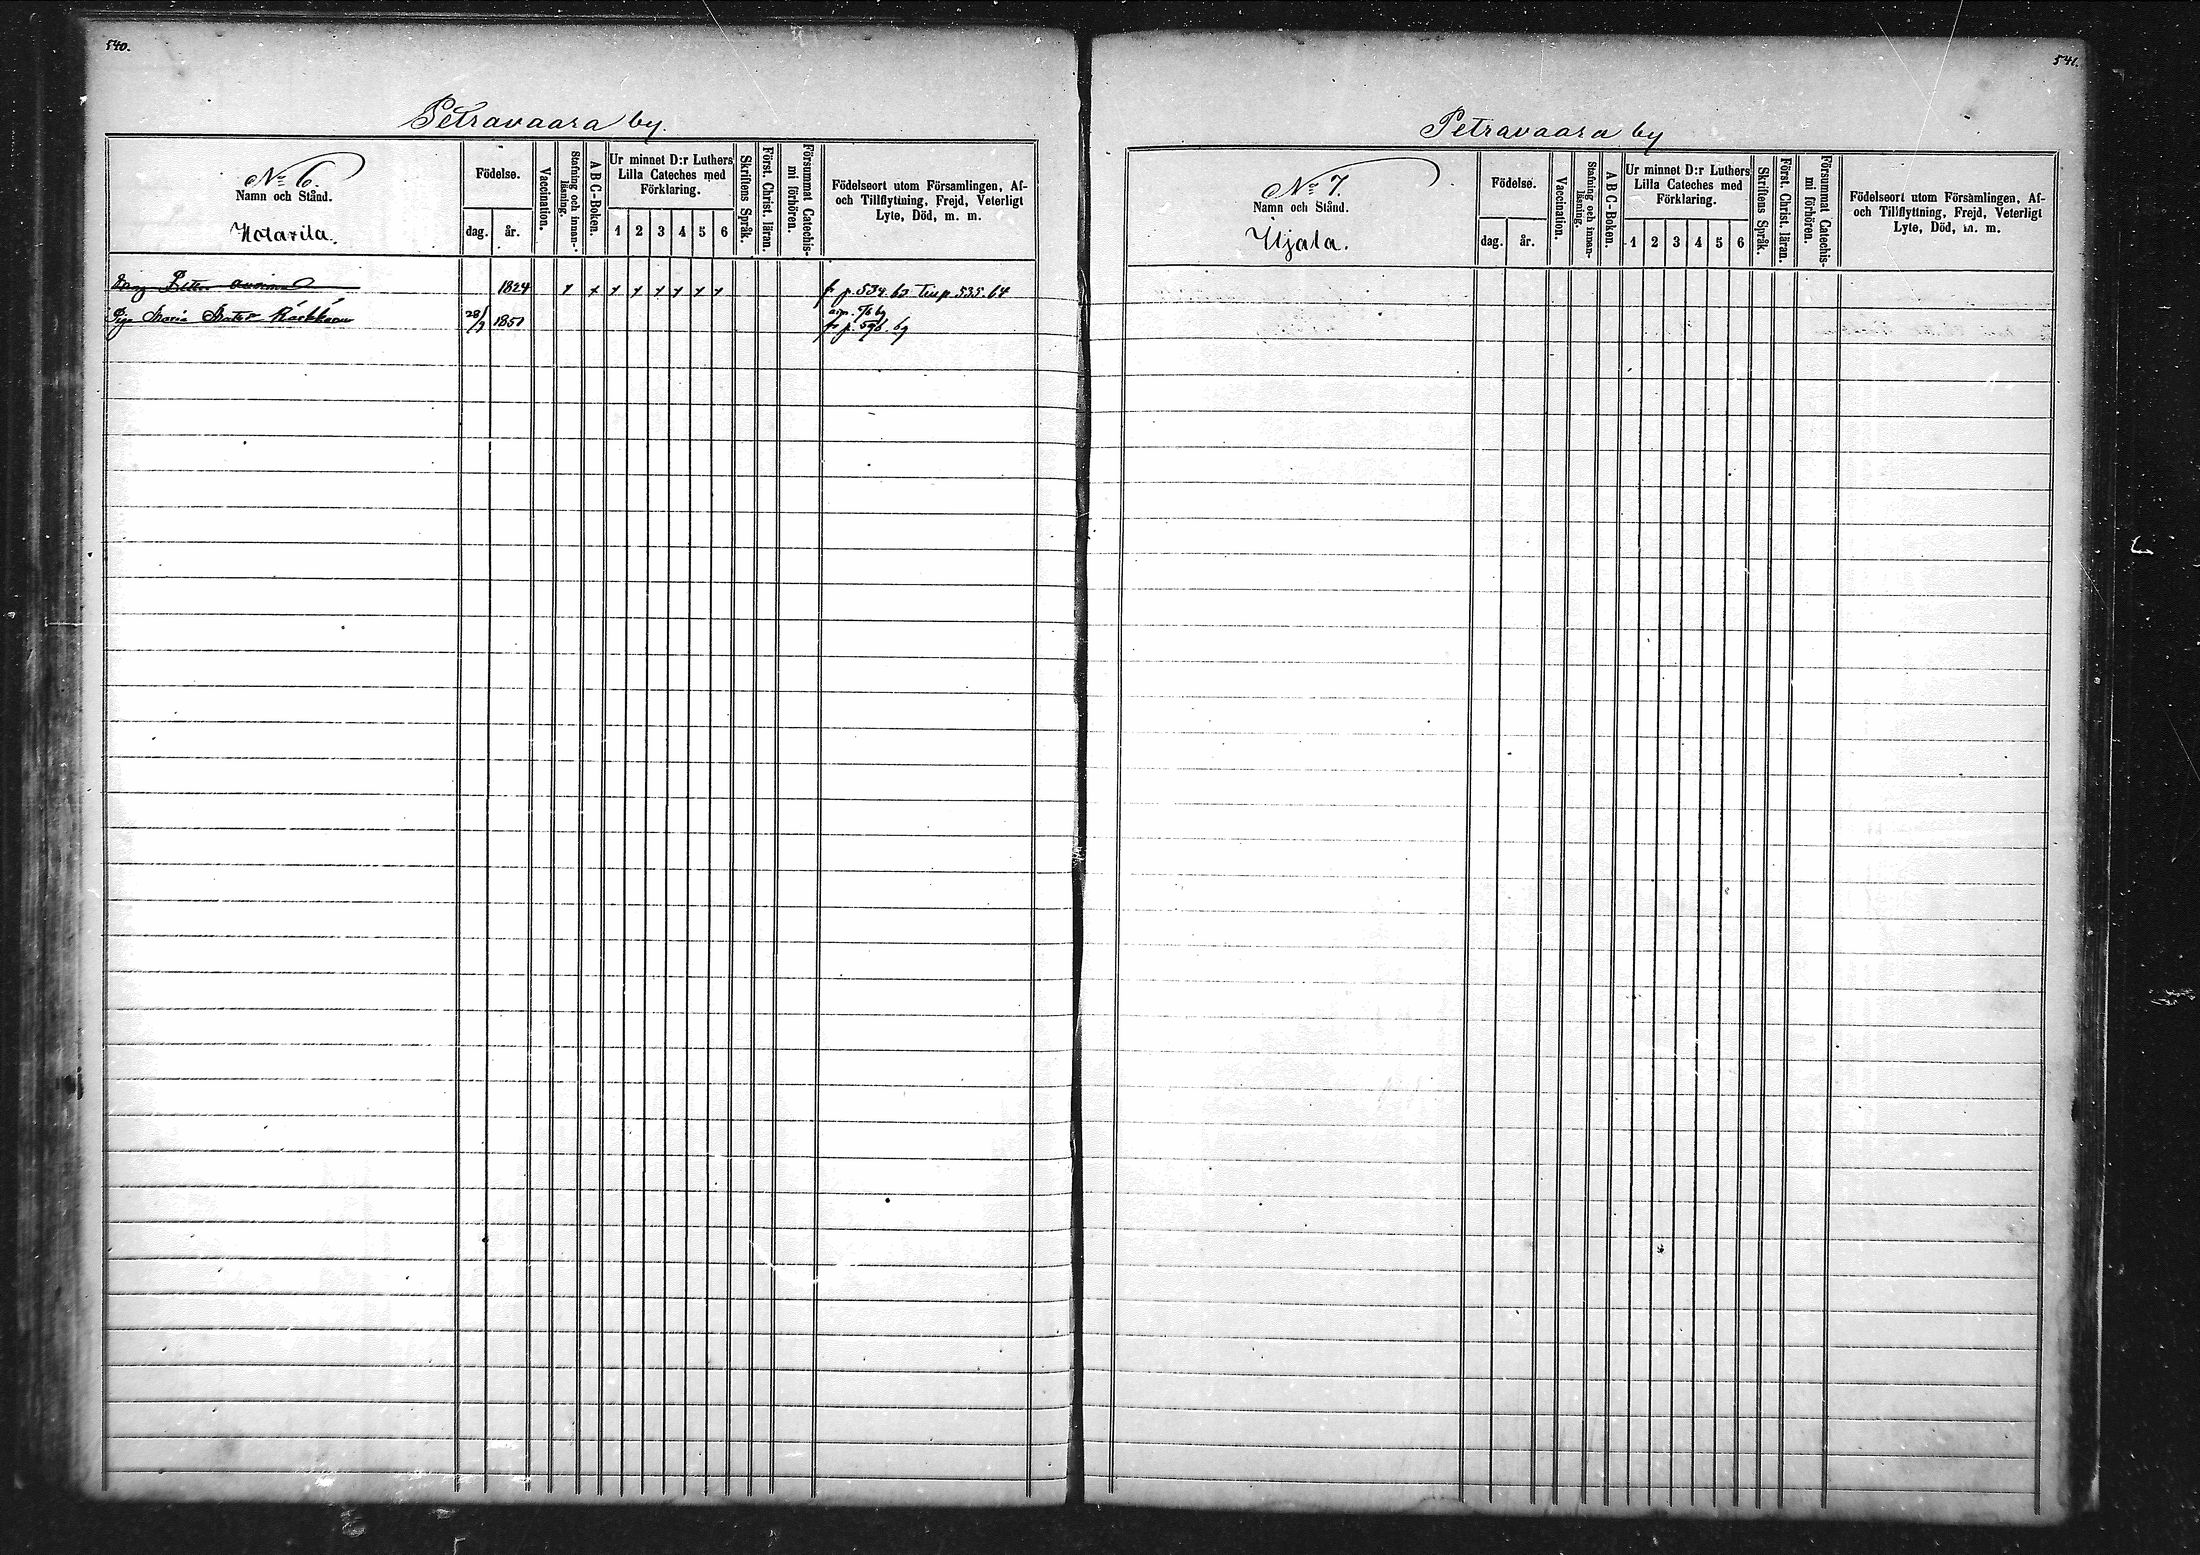 540.
Petravaara by.
No 6.
Namn och Stånd.
Födelse.
dag.
år.
Vaccination.
Stafning och innan-
läsning.
A B C-Boken.
Ur minnet D:r Luthers
Lilla Cateches med
Förklaring.
1 2 3 4 5 6
Skriftens Språk.
Först. Christ. läran.
Försummat Catechis-
mi förhören.
Födelseort utom Församlingen, Af-
och Tillflyttning, Frejd, Veterligt
Lyte, Död, m. m.
Peter 1824 x x x x x x x x p. 534. 63 535. 64
Maria 28/ 1851 p. 596. 69
541.
Petravaara by
No 7.
Namn och Stånd.
Ujala.
Födelse.
dag.
år.
Vaccination.
Stafning och innan-
läsning.
A B C-Boken.
Ur minnet D:r Luthers
Lilla Cateches med
Förklaring.
1 2 3 4 5 6
Skriftens Språk.
Först. Christ. läran.
Försummat Catechis-
mi förhören.
Födelseort utom Församlingen, Af-
och Tillflyttning, Frejd, Veterligt
Lyte, Död, m. m.